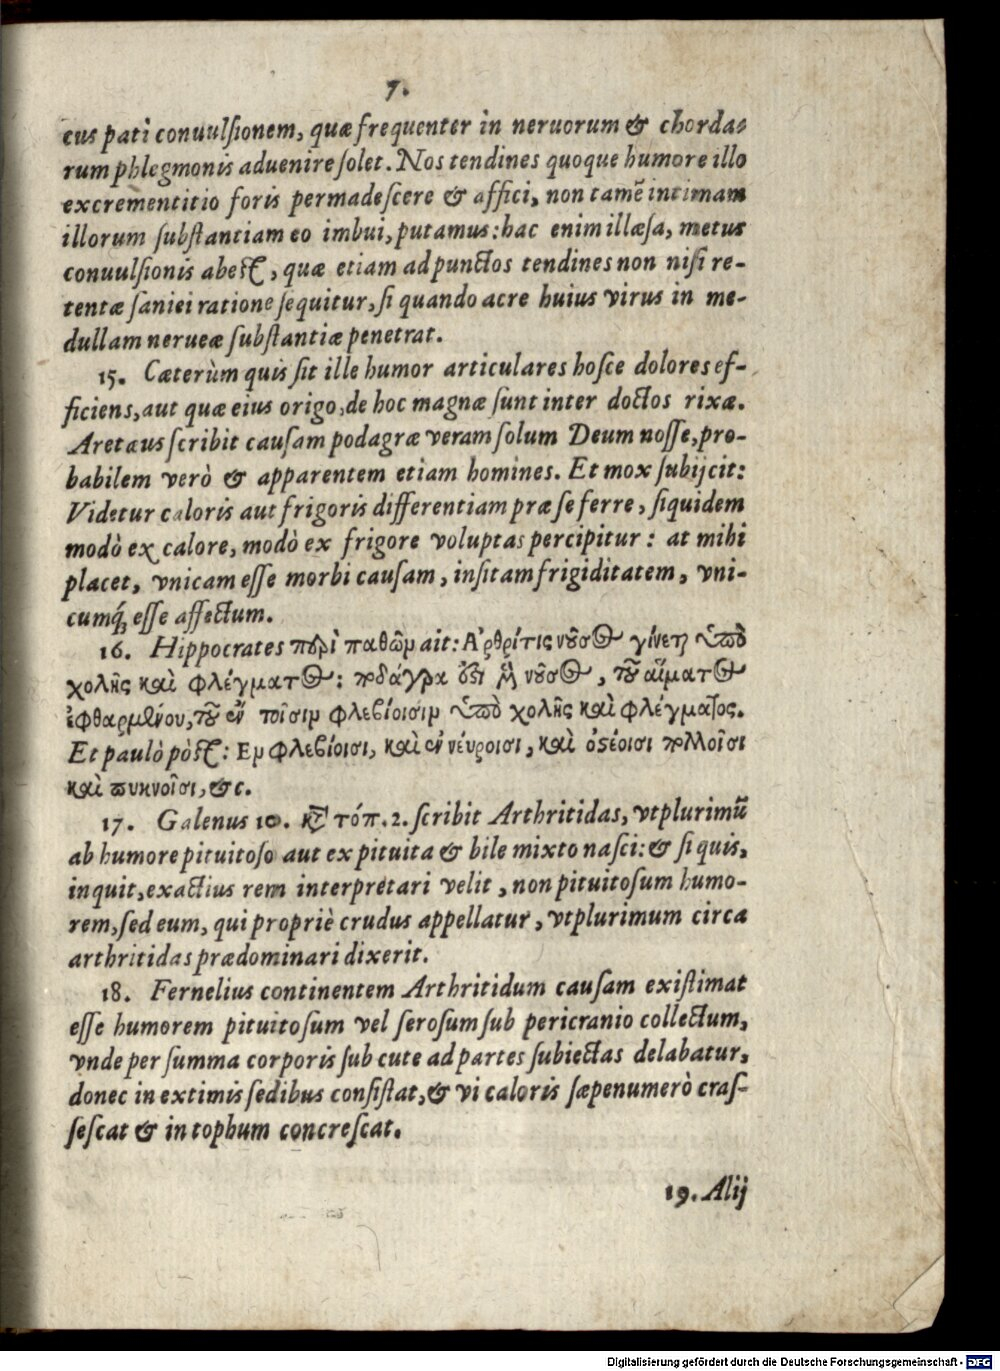 7.
cus pati conuulsionem, quæ frequenter in neruorum & chordas
rum phlegmonis aduenire solet. Nos tendines quoque humore illo
excrementitio foris permadescere & affici, non tamẽ intimam
illorum substantiam eo imbui, putamus: hac enim illæsa, metus
conuulsionis abest, quæ etiam ad punctos tendines non nisi re-
tentæ saniei ratione sequitur, si quando acre huius virus in me-
dullam nerueæ substantiæ penetrat.
15. Cæterùm quis sit ille humor articulares hosce dolores ef-
ficiens, aut quæ eius origo, de hoc magnæ sunt inter doctos rixæ.
Aretæus scribit causam podagræ veram solum Deum nosse, pro-
babilem verò & apparentem etiam homines. Et mox subijcit:
Videtur caloris aut frigoris differentiam præ se ferre, siquidem
modò ex calore, modò ex frigore voluptas percipitur: at mihi
placet, vnicam esse morbi causam, insitam frigiditatem, vni-
cumq́; esse affectum.
16. Hippocrates περὶ παθῶμ ait: Ἀρθρίτις νοῦσος γίνεται ὑπὸ
χολῆς καὶ φλέγματος: ποδάγρα ἐστὶ ἡ νοῦσος, τοῦ αἵματος
ἐφθαρμένου, τοῦ ἐν τοῖσιμ φλεβίοισιμ ὑπὸ χολῆς καὶ φλέγματος.
Et paulò pòst: Εμ φλεβίοισι, καὶ ἐν νέυροισι, καὶ ὀστέοισι πολλοῖσι
καὶ πυκνοῖσι, &c.
17. Galenus 10. κτ̃ τόπ. 2. scribit Arthritidas, vtplurimũ
ab humore pituitoso aut ex pituita & bile mixto nasci: & si quis,
inquit, exactius rem interpretari velit, non pituitosum humo-
rem, sed eum, qui propriè crudus appellatur, vtplurimum circa
arthritidas prædominari dixerit.
18. Fernelius continentem Arthritidum causam existimat
esse humorem pituitosum vel serosum sub pericranio collectum,
vnde per summa corporis sub cute ad partes subiectas delabatur,
donec in extimis sedibus consistat, & vi caloris sæpenumerò cras-
sescat & in tophum concrescat.
19. Alij
Digitalisierung gefördert durch die Deutsche Forschungsgemeinschaft - DFG